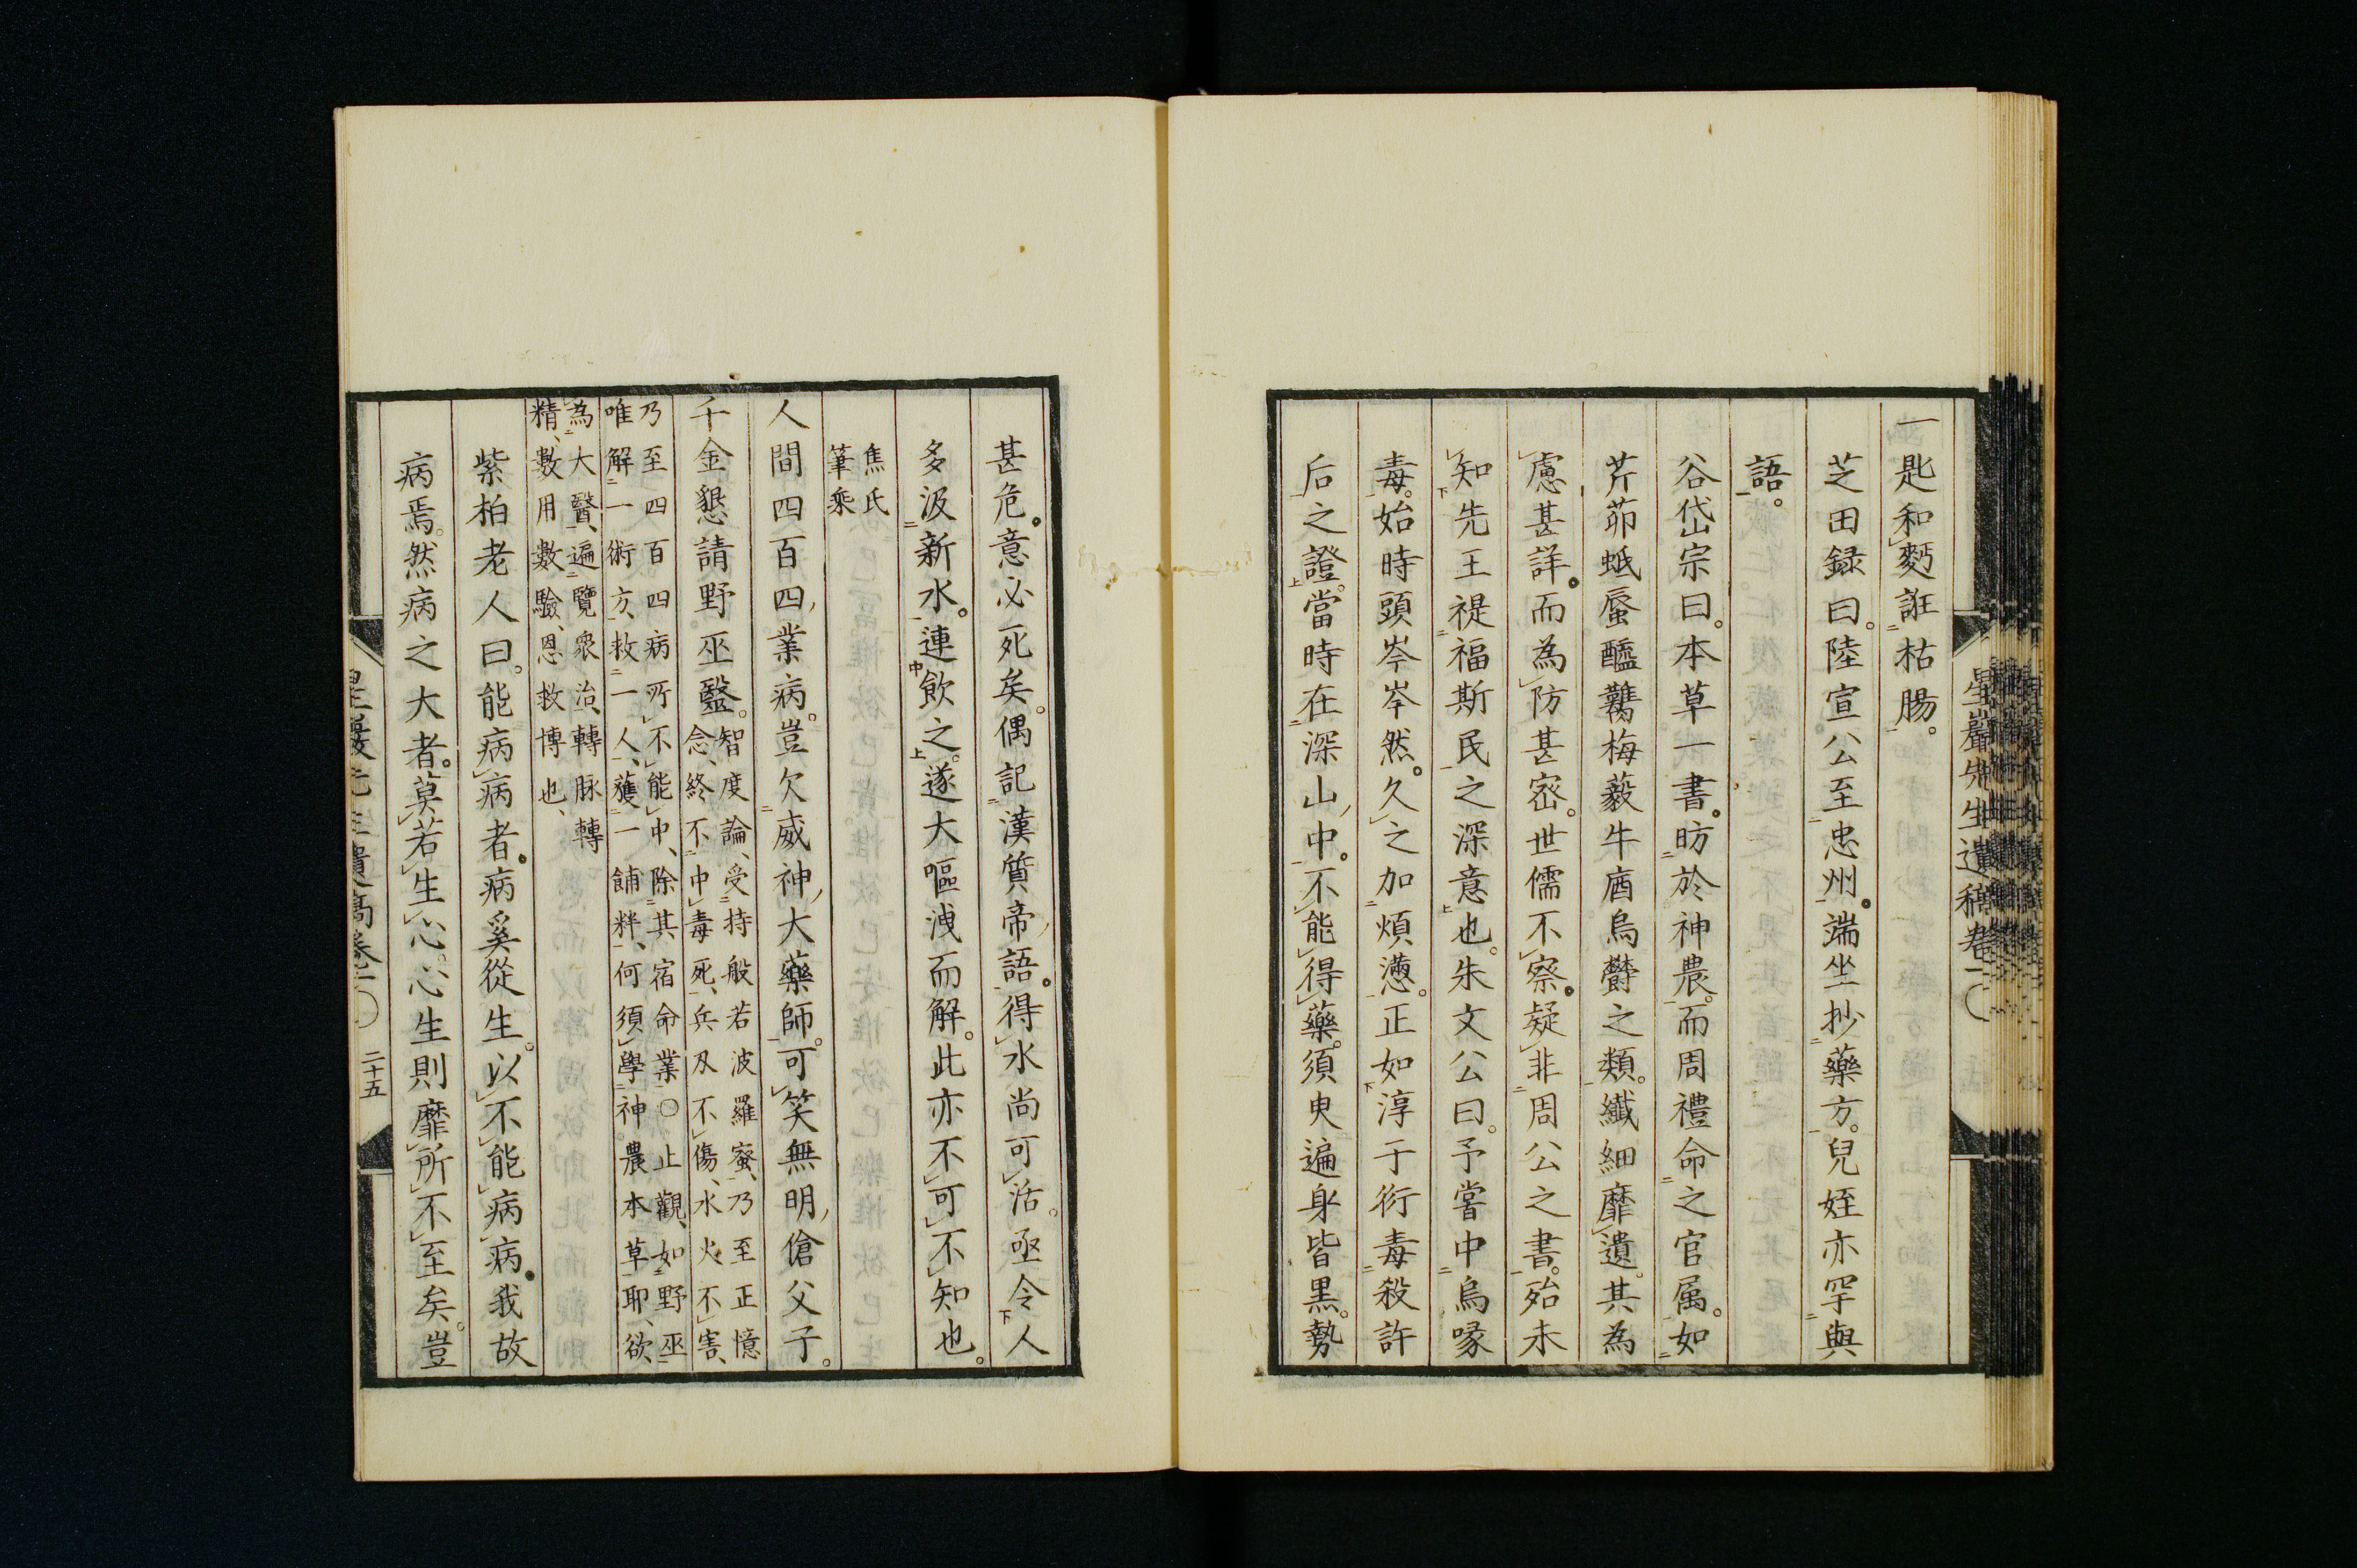 一匙和麪誑枯腸。
芝田録曰。陸宣公至忠州。端坐抄藥方。兒姪亦罕與
語。
谷岱宗曰。本草一書。昉於神農。而周禮命之官属。如
芹茆蚳蜃醯䕩梅藙牛㢝烏欝之類。纎細靡遺。其為
慮甚詳。而為防甚宻。世儒不察。疑非周公之書。殆未
知先王禔福斯民之深意也。朱文公曰。予嘗中烏喙
毒。始時頭岑岑然。久之加煩懣。正如淳于衍毒殺許
后之證。當時在深山中。不能得藥。須臾遍身皆黒。勢
星巖先生遺稿卷一〇
甚危。意必死矣。偶記漢質帝語。得水尚可活。亟令人
多汲新水。連飲之。遂大嘔洩而解。此亦不可不知也。
焦氏
筆乘
人間四百四業病。豈欠威神大藥師。可笑無明傖父子。
千金懇請野巫毉。
智度論、受持般若波羅蜜、乃至正憶
念、終不中毒死、兵刄不傷、水火不害、
乃至四百四病所不能中、除其宿命業〇止觀、如野巫
唯解一術方、救一人、獲一餔粹、何須學神農本草耶、欲
為大醫、遍覽衆治、轉脉轉
精、數用數驗、恩救博也、
紫柏老人曰。能病病者。病奚從生。以不能病病。我故
病焉。然病之大者。莫若生心。心生則靡所不至矣。豈
星巖先生遺稿卷一〇 二十五